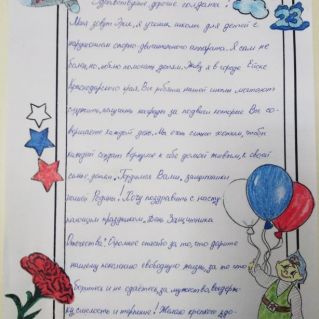 Здравствуйте, дорогие солдаты!
23
Меня зовут Эрик, я ученик школы для детей с
нарушением опорно-двигательного аппарата. Я сам не
болею, но люблю помогать детям. Живу я в городе Ейске
Краснодарского края. Все ребята нашей школы мечтают
служить, получать награды за подвиги которые Вы со-
вершаете каждый день. Мы очень сильно хотим, чтобы
каждый солдат вернулся к себе домой живым, к своей
семье, детям. Гордимся Вами, защитники
нашей Родины! Хочу поздравить с насту-
пающим праздником, День Защитника
Отечества! Огромное спасибо за то, что дарите
нашему поколению свободную жизнь, за то что
боритесь и не сдаётесь, за мужество, выдерж-
ку, смелость и терпение! Желаю крепкого здо-